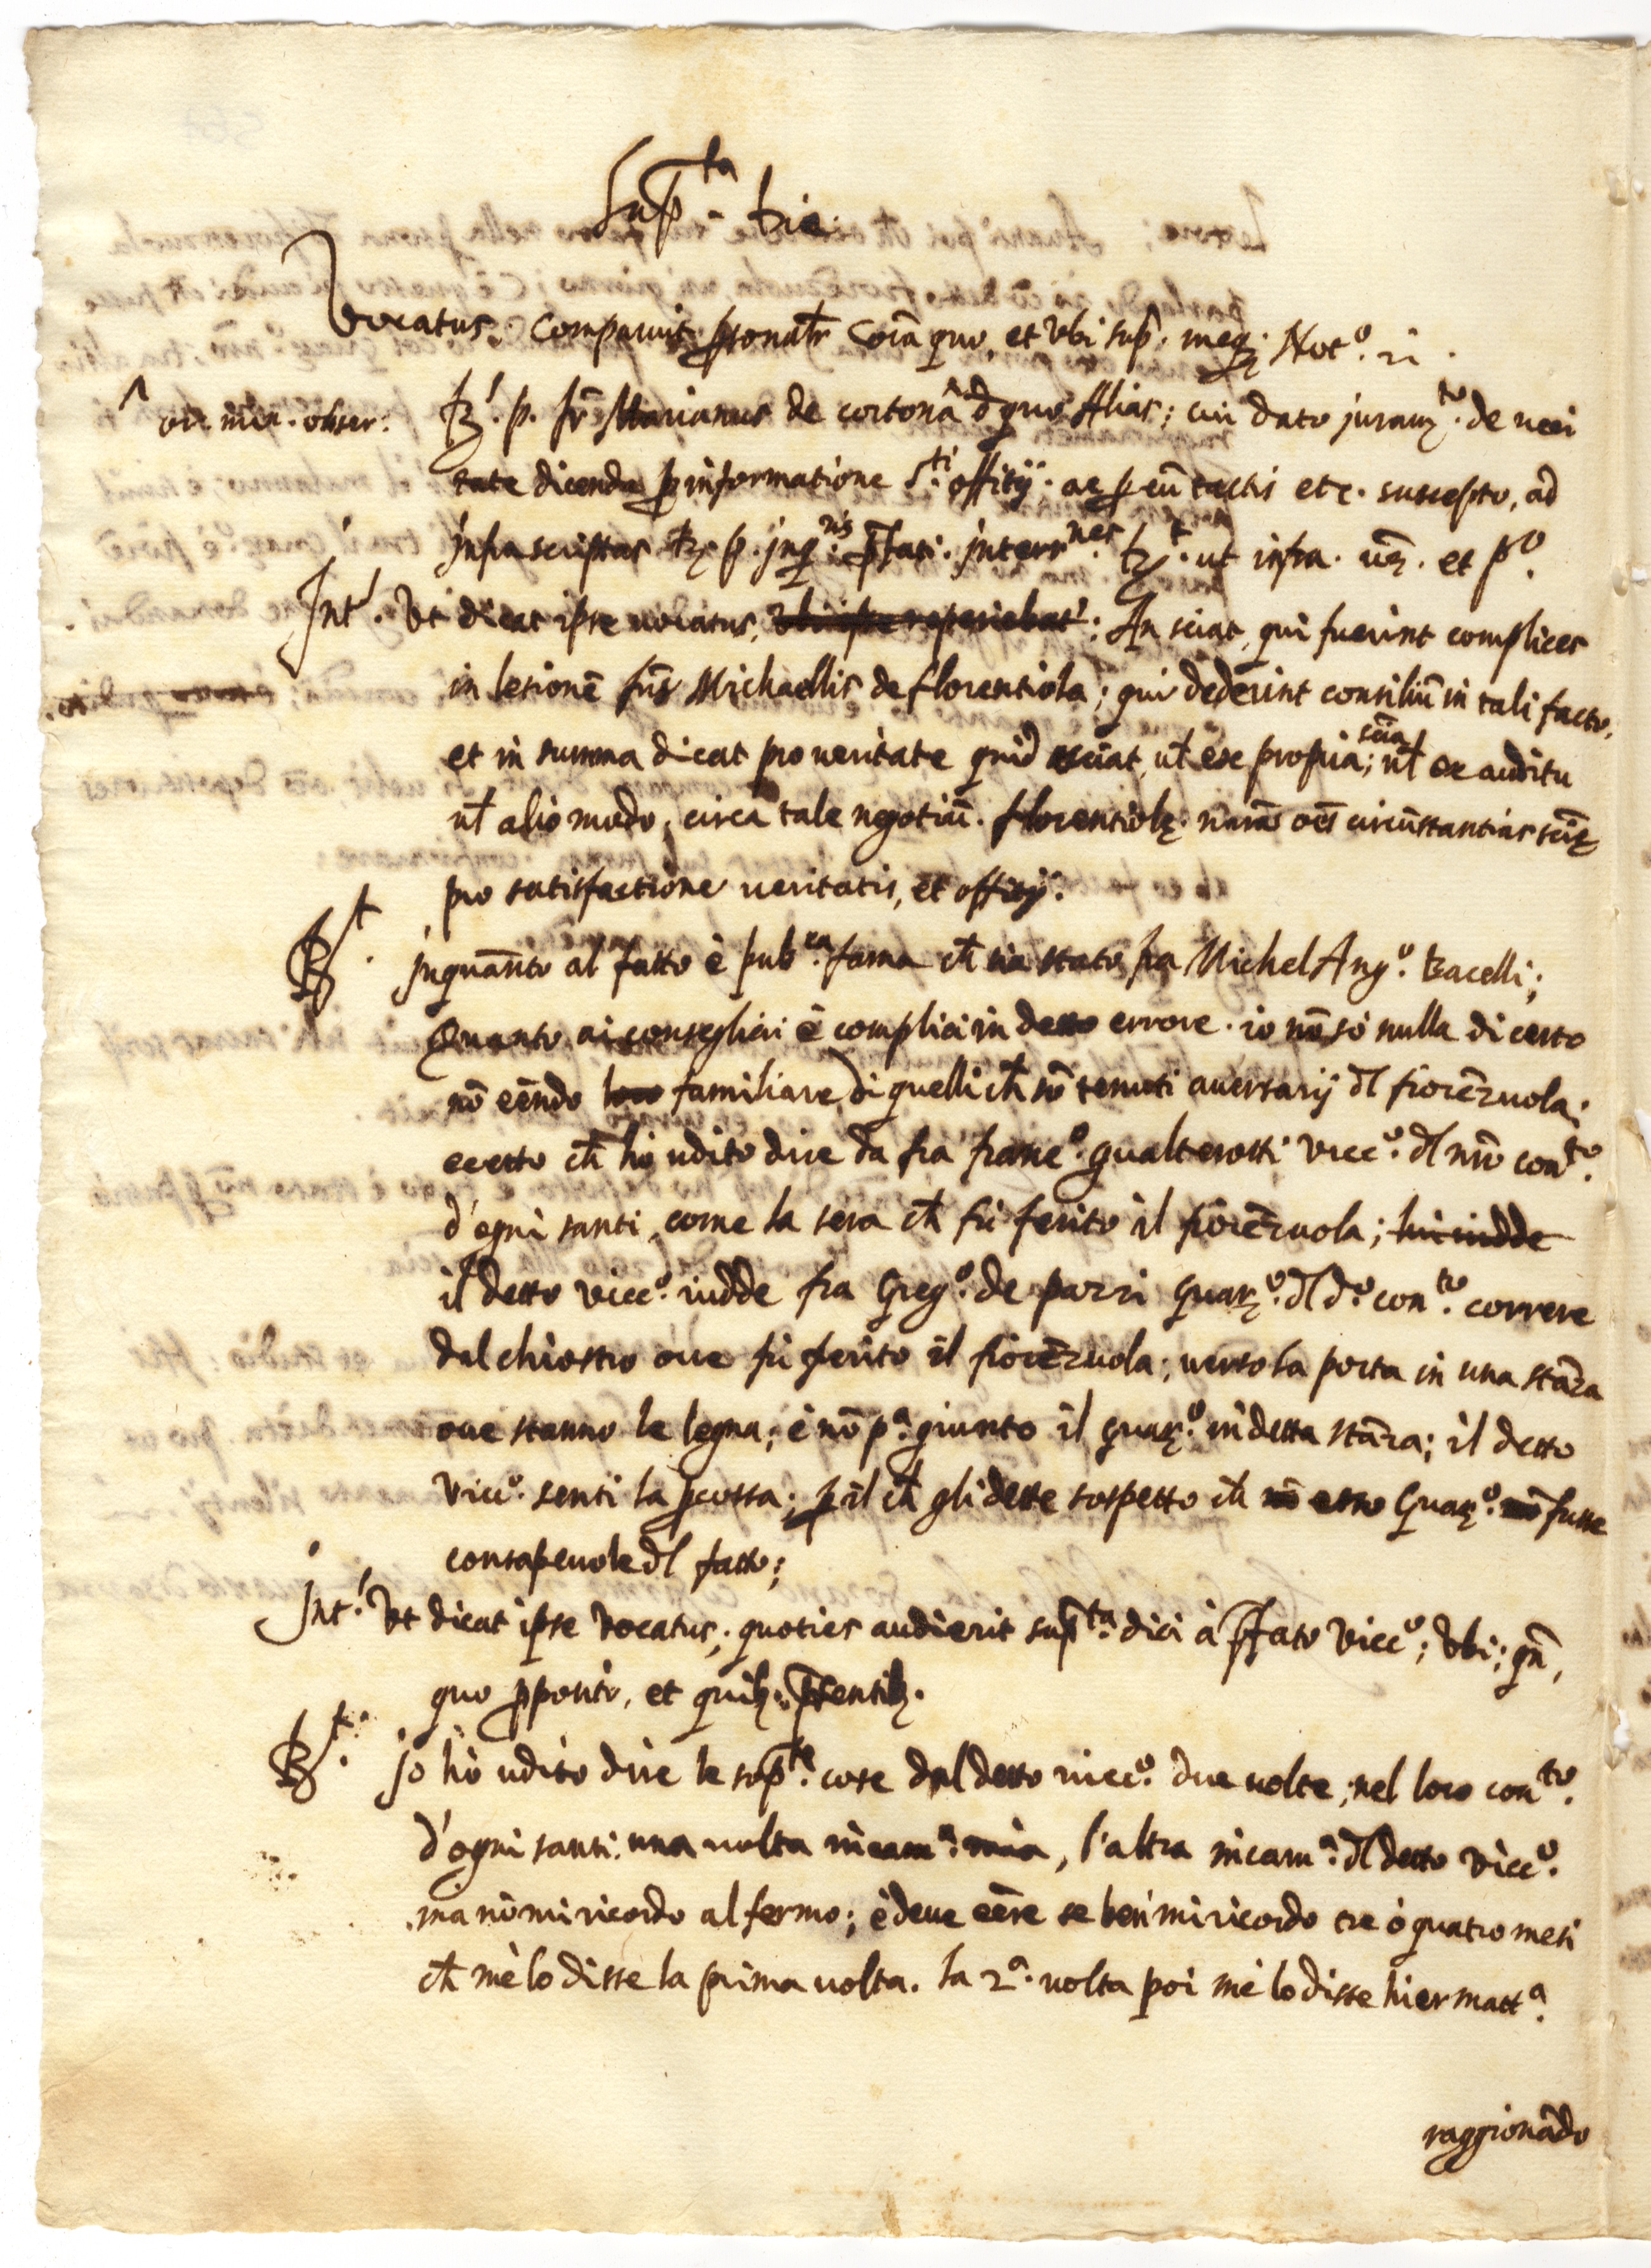 Sup.ta Die
Vocatus. Comparuit psonalr Corā quo, et Vbi sup. meq; Not.º ij.
ord. min. obser:
R. p. fr Marianus de cortonâ d quo Alias; cui dato juram.to de veri
tate dicenda p informatione S.ti offitij. ac p eū tactis etc. suscepto, ad
jnfrascriptas R. p. jnq.ris pfati. jnterr.nes R.t ut infra. uz. et pº.
Int.t Vt dicat ipse uocatus, vbi ipse reperiebat.r: An sciat, qui fuerint complices
in lesionē fris Michaellis de florentiola; qui dederint consiliū in tali facto,
et in summa dicat pro veritate quid sciat, ul ex propria scia; ul ex auditu
ul alio modo, circa tale negotiū. florentiolę. narrā oēs circūstantias sciē
pro satisfactione ueritatis, et offitij.
R.t jnquānto al fatto è pub.ca fama ch sia stato fra Michel Ang.º Bacelli;
Quanto ai conseglieri è complici in detto errore. io nō só nulla di certo
nō eēndo loro familiare di quelli ch sō tenuti auersarij dl fiorēzuola;
ecetto ch ho udito dire da fra franc.º gualterotti vicc.º dl nro con.to
d'ogni santi, come la sera ch fù ferito il fiorēzuola; lui uidde
il detto vicc.º uidde fra Greg.º de pazzi guar.º dl d.º con.to correre
dal chiostro oue fù ferito il fiorēzuola; uerso la porta in una stāza
oue stanno le legna; è nō p.a giunto il guar.º in detta stāza; il detto
vicc.º senti la pcossa; p il ch gli dette sospetto ch nō esso Guar.º nō fusse
consapeuole dl fatto;
Int.t Vt dicat ipse vocatus; quoties audierit sup.ta dici à pfato vicc.º; Vbi; qn,
quo pposito, et quib; psentib;.
R.t jo hò udito dire le sop.te cose dal detto uicc.º due uolte, nel loro con.to
d'ogni santi. una uolta in cam.a mia, l'altra in cam.a dl detto vicc.º
ma nō mi ricordo al fermo; è deue eēre se ben mi ricordo tre ò quatro mesi
ch mè lo disse la prima uolta. la 2.a uolta poi mè lo disse hiermatt.a
raggionādo